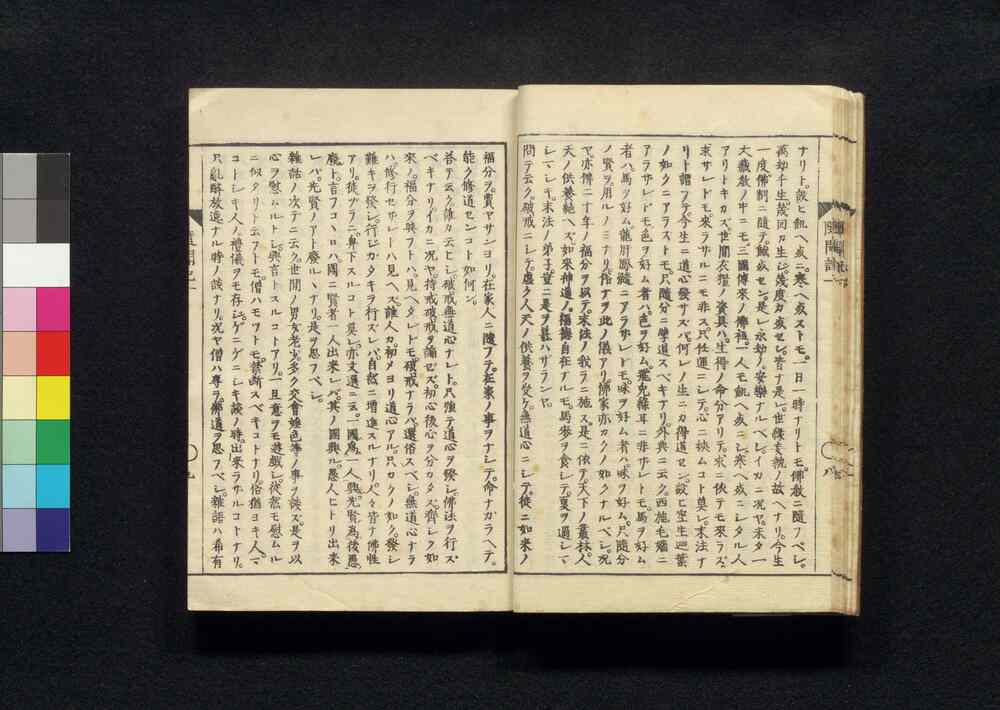 ナリトモ。設ヒ飢ヘ或ニ。寒ヘ或ストモ。一日一時ナリトモ。佛教ニ隨フベシ。
萬劫千生。幾回カ生シ。幾度カ或セシ。皆ナ是レ。世縁妄執ノ故ヘナリ。今生
一度佛制ニ隨テ。餓或セン。是レ永劫ノ安樂ナルベシ。イカニ況ヤ。未タ一
大藏教ノ中ニモ。三國傳來ノ佛祖。一人モ飢ヘ或ニシ。寒ヘ或ニシタル人
アリトキカズ。世間衣糧ノ資具ハ。生得ノ命分アリテ。求ニ依テモ來ラズ。
求サレドモ。來ラサルニモ非ス。只任運ニシテ。心ニ挾ムコト莫レ。末法ナ
リト謂フテ。今生ニ道心發サズバ。何レノ生ニカ得道セン。設ヒ空生迦葉
ノ如クニアラストモ。只隨分ニ學道スベキナリ。外典ニ云ク。西施毛嬙ニ
アラザレドモ。色ヲ好ム者ハ。色ヲ好ム。飛兎緑耳ニ非ザレトモ。馬ヲ好ム
者ハ。馬ヲ好ム。龍肝豹髓ニアラザレドモ。味ヲ好ム者ハ。味ヲ好ム。只隨分
ノ賢ヲ。用ルノミナリ。俗ナヲ此ノ儀アリ。佛家亦カクノ如クナルベシ。況
ヤ亦佛二十年ノ福分ヲ以テ。末法ノ我ラニ施ス。是ニ依テ。天下ノ叢林。人
天ノ供養絶ヘズ。如來神通ノ福徳自在ナルモ。馬麥ヲ食シテ。夏ヲ過シマ
シマシキ。末法ノ弟子。豈ニ是ヲ慕ハザランヤ。
問テ云ク。破戒ニシテ。虚ク人天ノ供養ヲ受ケ。無道心ニシテ。徒ニ如來ノ
福分ヲ。費ヤサンヨリ。在家人ニ隨フテ。在家ノ事ヲナシテ。命ナガラヘテ。
能ク修道センコト如何ン。
答テ云ク。誰カ云ヒシ。破戒無道心ナレト。只強テ道心ヲ發シ。佛法ヲ行ズ
ベキナリ。イカニ況ヤ。持戒破戒ヲ論セズ。初心後心ヲ分カタズ。齊シク如
來ノ福分ヲ與フトハ。見ヘタレドモ。破戒ナラバ還俗スベシ。無道心ナラ
ハ。修行セザレトハ見ヘズ。誰人カ。初メヨリ道心アル。只カクノ如ク。發シ
難キヲ發シ。行シカタキヲ行ズレバ。自然ニ増進スルナリ。人々皆ナ佛性
アリ。徒ヅラニ卑下スルコト莫レ。亦文選ニ云。一國為一人興。先賢為後愚
廢ト。言フコヽロハ。國ニ賢者一人出來レバ。其ノ國興ル。愚人ヒトリ出來
レバ。先賢ノアト廢ルヽナリ。是ヲ思フベシ。
雜話ノ次テニ云ク。世間ノ男女老少。多ク交會婬色等ノ事ヲ談ス。是ヲ以
心ヲ慰ムルトシ。興言トスルコトアリ。一旦意ヲモ遊戲シ。徒然モ慰ムル
ニ似タリト云フトモ。僧ハモツトモ。禁斷スベキコトナリ。俗猶ヨキ人。マ
コトシキ人ノ。禮儀ヲモ存シ。ゲニゲニシキ談ノ時。出來ラザルコトナリ。
只亂醉放逸ナル時ノ談ナリ。況ヤ僧ハ專ラ。佛道ヲ思フベシ。雜話ハ希有